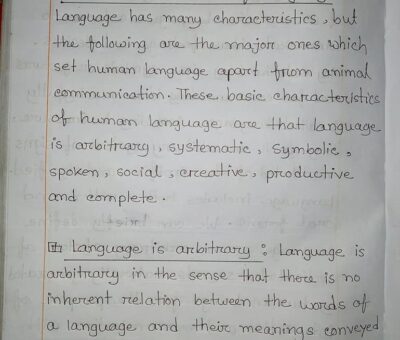 Language has many characteristics, but
the following are the major ones which
set human language apart from animal
communication. These basic characteristics
of human language are that language
is arbitrary, systematic, symbolic,
spoken, social, creative, productive
and complete.
Language is arbitrary : Language is
arbitrary in the sense that there is no
inherent relation between the words of
a language and their meanings conveyed